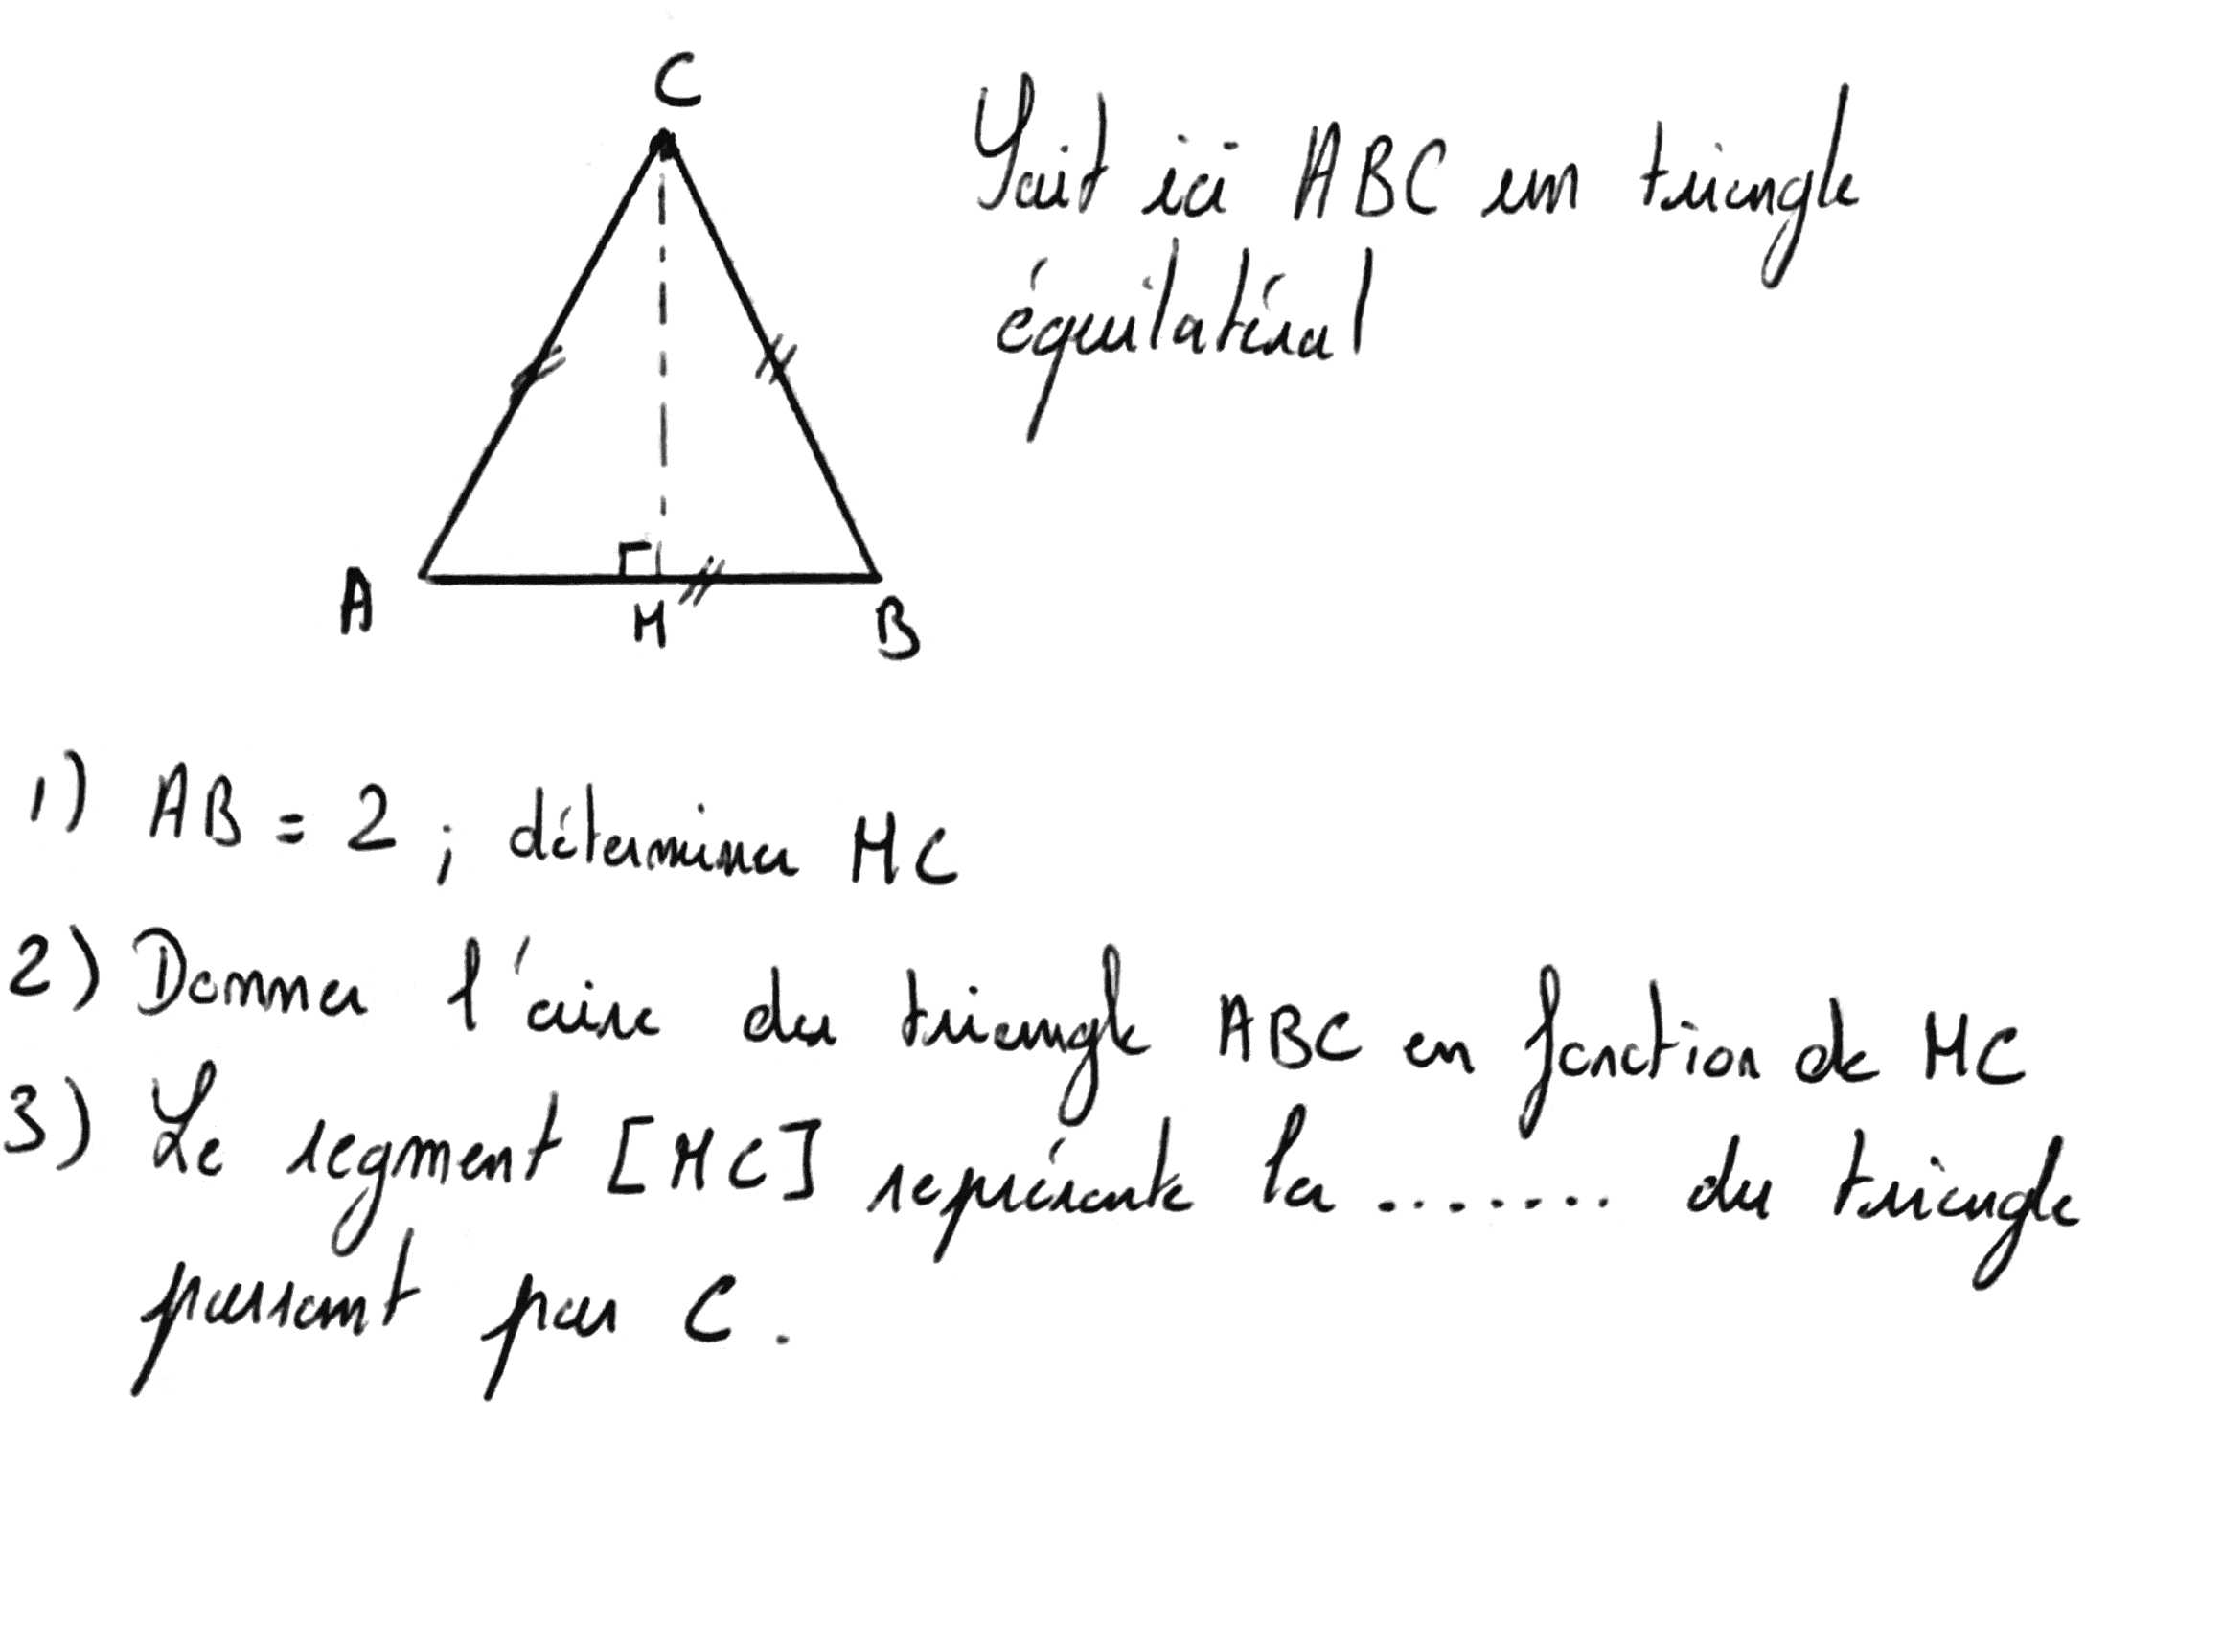 C
Soit ici ABC un triangle
équilatéral
A
H
B
1) AB = 2 ; déterminer HC
2) Donner l'aire du triangle ABC en fonction de HC
3) Le segment [HC] représente la ........ du triangle
passant par C.